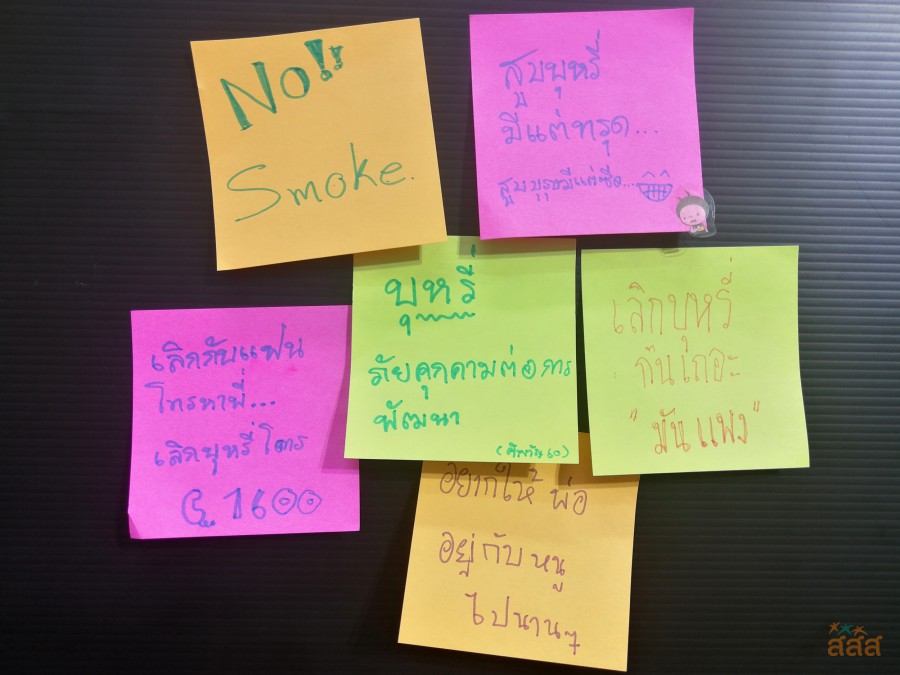 No!!
Smoke.
สูบบุหรี่
มีแต่ทรุด...
สูบบุหรี่มีแต่ซีด...
บุหรี่
ภัยคุกคามต่อการ
พัฒนา
เลิกบุหรี่
กันเถอะ
"มันแพง"
เลิกกับแฟน
โทรหาพี่...
เลิกบุหรี่โทร
1600
อยากให้พ่อ
อยู่กับหนู
ไปนานๆ
สสส